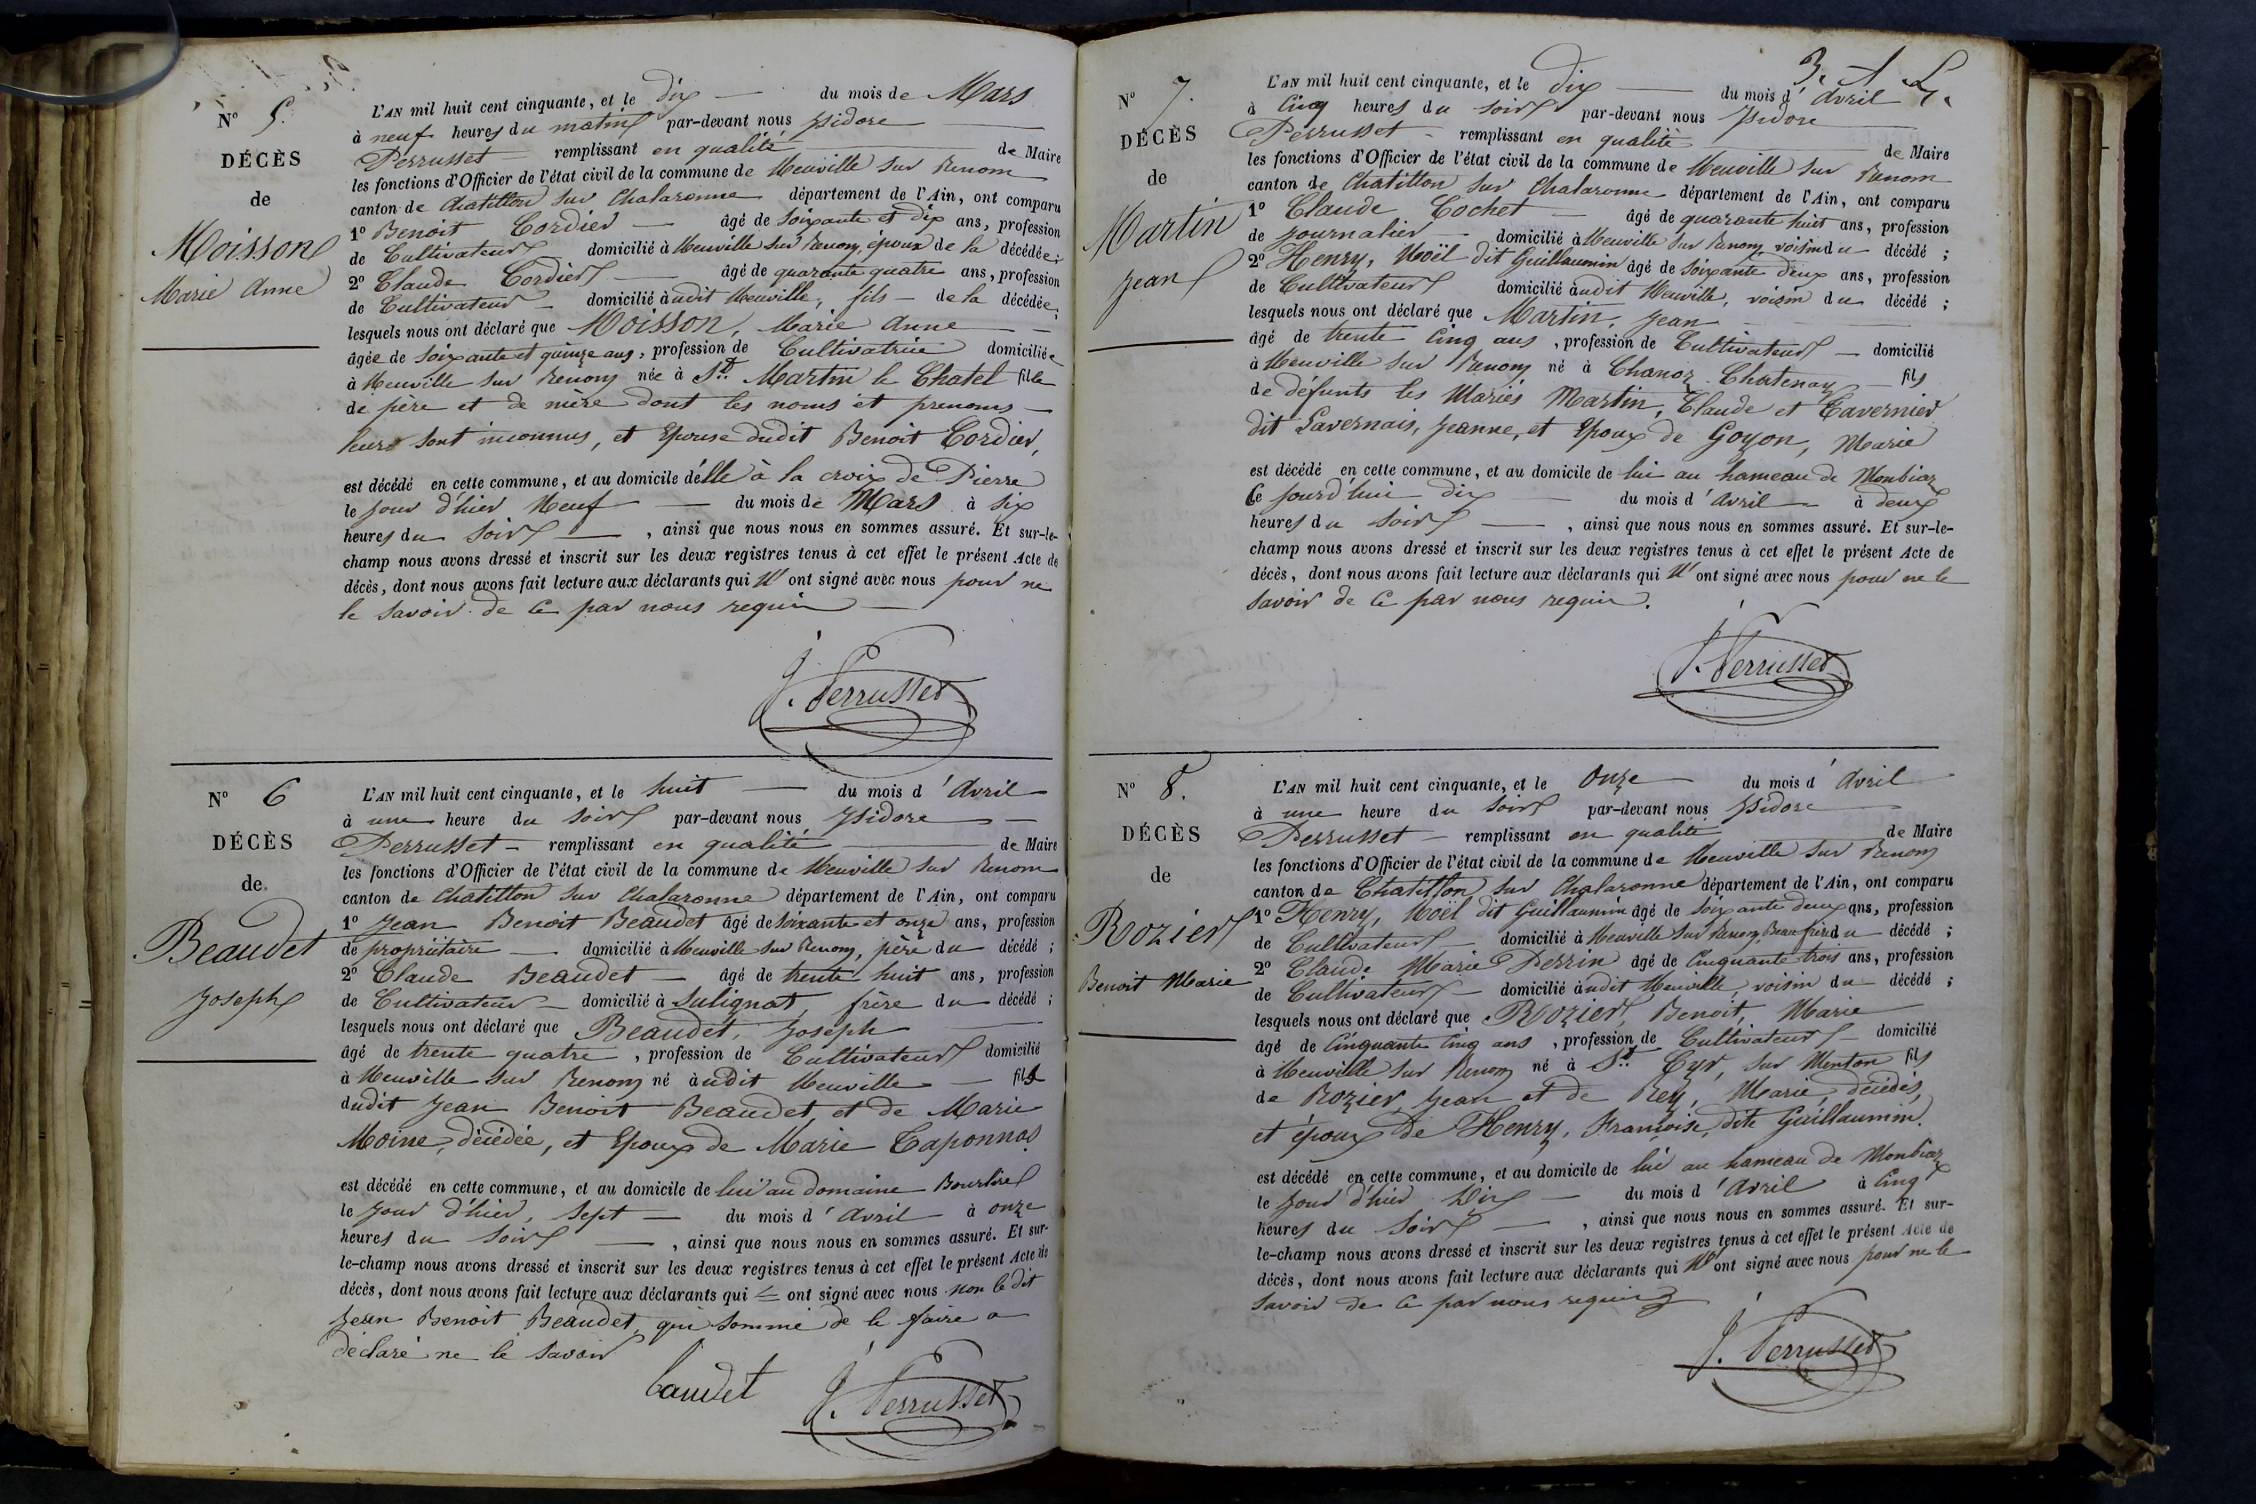 N° 5.
DÉCÈS
de
Moisson
Marie Anne
L'AN mil huit cent cinquante, et le dix — du mois de Mars
à neuf heures du matin par-devant nous Isidore —
Perrusset — remplissant en qualité — de Maire
les fonctions d'Officier de l'état civil de la commune de Neuville sur Renom
canton de Chatillon sur Chalaronne département de l'Ain, ont comparu
1° Benoit Cordier — âgé de soixante et dix ans, profession
de Cultivateur domicilié à Neuville sur Renom, époux de la décédée;
2° Claude Cordier — âgé de quarante quatre ans, profession
de Cultivateur — domicilié àudit Neuville, fils — de la décédée;
lesquels nous ont déclaré que Moisson, Marie Anne —
âgée de soixante et quinze ans, profession de Cultivatrice domiciliée
à Neuville sur Renom née à St. Martin le Chatel fille
de père et de mère dont les noms et prenoms —
leurs sont inconnus, et Epouse dudit Benoit Cordier,
est décédé en cette commune, et au domicile d'élle à la croix de Pierre
le jour d'hier Neuf — du mois de Mars à six
heures du soir — , ainsi que nous nous en sommes assuré. Et sur-le-
champ nous avons dressé et inscrit sur les deux registres tenus à cet effet le présent Acte de
décès, dont nous avons fait lecture aux déclarants qui N' ont signé avec nous pour ne
le savoir de ce par nous requis —
J. Perrusset
N° 6
DÉCÈS
de
Beaudet
Joseph
L'AN mil huit cent cinquante, et le huit — du mois d'Avril
à une heure du soir par-devant nous Isidore —
Perrusset — remplissant en qualité — de Maire
les fonctions d'Officier de l'état civil de la commune de Neuville sur Renom
canton de Chatillon sur Chalaronne département de l'Ain, ont comparu
1° Jean Benoit Beaudet âgé de soixante et onze ans, profession
de propriétaire — domicilié à Neuville sur Renom, père du décédé;
2° Claude Beaudet — âgé de trente huit ans, profession
de Cultivateur — domicilié à Sulignat, frère du décédé;
lesquels nous ont déclaré que Beaudet, Joseph —
âgé de trente quatre, profession de Cultivateur domicilié
à Neuville sur Renom né àudit Neuville — fils
dudit Jean Benoit Beaudet, et de Marie
Moine, décédée, et Epoux de Marie Taponnas.
est décédé en cette commune, et au domicile de lui au domaine Bourlirel
le jour d'hier, sept — du mois d'Avril à onze
heures du soir — , ainsi que nous nous en sommes assuré. Et sur-
le-champ nous avons dressé et inscrit sur les deux registres tenus à cet effet le présent Acte de
décès, dont nous avons fait lecture aux déclarants qui — ont signé avec nous non le dit
Jean Benoit Beaudet, qui sommé de le faire a
déclaré ne le savoir
Baudet J. Perrusset
3. A L.
N° 7.
DÉCÈS
de
Martin
Jean
L'AN mil huit cent cinquante, et le dix — du mois d'Avril
à Cinq heures du soir par-devant nous Isidore
Perrusset — remplissant en qualité — de Maire
les fonctions d'Officier de l'état civil de la commune de Neuville sur Renom
canton de Chatillon sur Chalaronne département de l'Ain, ont comparu
1° Claude Cochet — âgé de quarante huit ans, profession
de Journalier — domicilié à Neuville sur Renom, voisin du décédé;
2° Henry, Noël dit Guillaumin âgé de soixante deux ans, profession
de Cultivateur domicilié àudit Neuville, voisin du décédé;
lesquels nous ont déclaré que Martin, Jean —
âgé de trente Cinq ans, profession de Cultivateur — domicilié
à Neuville sur Renom né à Chanoz Chatenay — fils
de défunts les Mariés Martin, Claude et Tavernier
dit Lavernais, Jeanne, et Epoux de Goyon, Marie
est décédé en cette commune, et au domicile de lui au hameau de Monbiaz
Ce jourd'hui dix — du mois d'Avril — à deux
heures du soir — , ainsi que nous nous en sommes assuré. Et sur-le-
champ nous avons dressé et inscrit sur les deux registres tenus à cet effet le présent Acte de
décès, dont nous avons fait lecture aux déclarants qui N' ont signé avec nous pour ne le
savoir de ce par nous requis.
J. Perrusset
N° 8.
DÉCÈS
de
Rozier
Benoit Marie
L'AN mil huit cent cinquante, et le Onze — du mois d'Avril
à une heure du soir par-devant nous Isidore —
Perrusset — remplissant en qualité — de Maire
les fonctions d'Officier de l'état civil de la commune de Neuville sur Renom
canton de Chatillon sur Chalaronne département de l'Ain, ont comparu
1° Henry, Noël dit Guillaumin âgé de soixante deux ans, profession
de Cultivateur — domicilié à Neuville sur Renom, Beau frère du décédé;
2° Claude Marie Perrin âgé de Cinquante trois ans, profession
de Cultivateur — domicilié àudit Neuville, voisin du décédé;
lesquels nous ont déclaré que Rozier, Benoit, Marie —
âgé de Cinquante Cinq ans, profession de Cultivateur — domicilié
à Neuville sur Renom né à St. Cyr, sur Menton fils
de Rozier Jean et de Rey, Marie, décédés,
et époux de Henry, Françoise, dite Guillaumin.
est décédé en cette commune, et au domicile de lui au hameau de Monbiaz
le jour d'hier Dix — du mois d'Avril à Cinq
heures du soir — , ainsi que nous nous en sommes assuré. Et sur-
le-champ nous avons dressé et inscrit sur les deux registres tenus à cet effet le présent Acte de
décès, dont nous avons fait lecture aux déclarants qui N' ont signé avec nous pour ne le
savoir de ce par nous requis
J. Perrusset